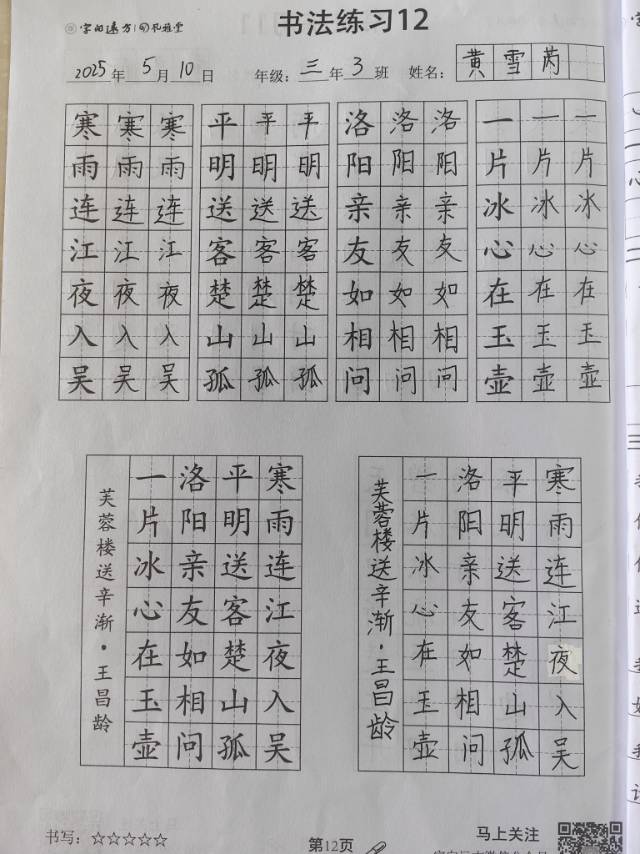 字如远方 | 孔雅堂
书法练习12
2025年5月10日 年级：三年3班 姓名：黄雪芮
寒寒寒 平平平 洛洛洛 一一一
雨雨雨 明明明 阳阳阳 片片片
连连连 送送送 亲亲亲 冰冰冰
江江江 客客客 友友友 心心心
夜夜夜 楚楚楚 如如如 在在在
入入入 山山山 相相相 玉玉玉
吴吴吴 孤孤孤 问问问 壶壶壶
芙蓉楼送辛渐·王昌龄
寒雨连江夜入吴
平明送客楚山孤
洛阳亲友如相问
一片冰心在玉壶
芙蓉楼送辛渐·王昌龄
寒雨连江夜入吴
平明送客楚山孤
洛阳亲友如相问
一片冰心在玉壶
书写：☆☆☆☆☆
第12页
马上关注